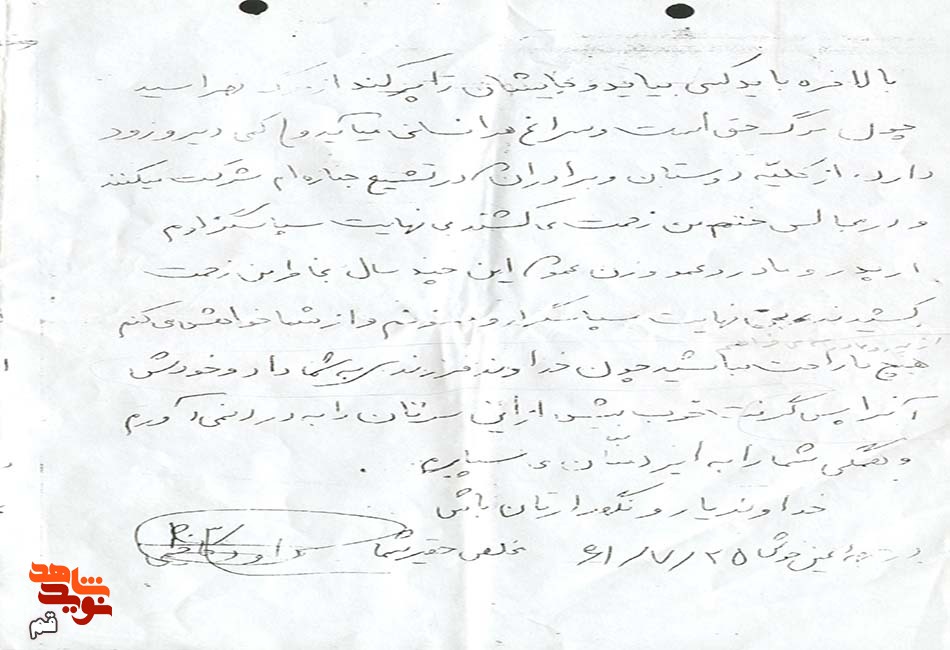 بالاخره باید کسی بیاید و جایشان را پر کند از مرگ نهراسید
چون مرگ حق است و سراغ هر انسانی میآید ولی کمی دیر و زود
دارد. از کلیّه دوستان و برادرانم در تشییع جنازه ام شرکت میکنند
و در مجالس ختم من زحمت می کشند بی نهایت سپاسگزارم
از پدر و مادر و عمو و زن عمو که این چند سال بخاطر من زحمت
کشیدند بی نهایت سپاسگزار و از شما خواهش می کنم
هیچ ناراحت نباشید چون خداوند فرزندی به شما داد و خودش
آنرا پس گرفت خوب بیش از این سرتان را به درد نمی آورم
و همگی شما را به ایزد منّان می سپارم.
خداوند یار و نگهدارتان باش
۶۱/۷/۲۵ مخلص حقیر شما
شاهد
نوید
قم